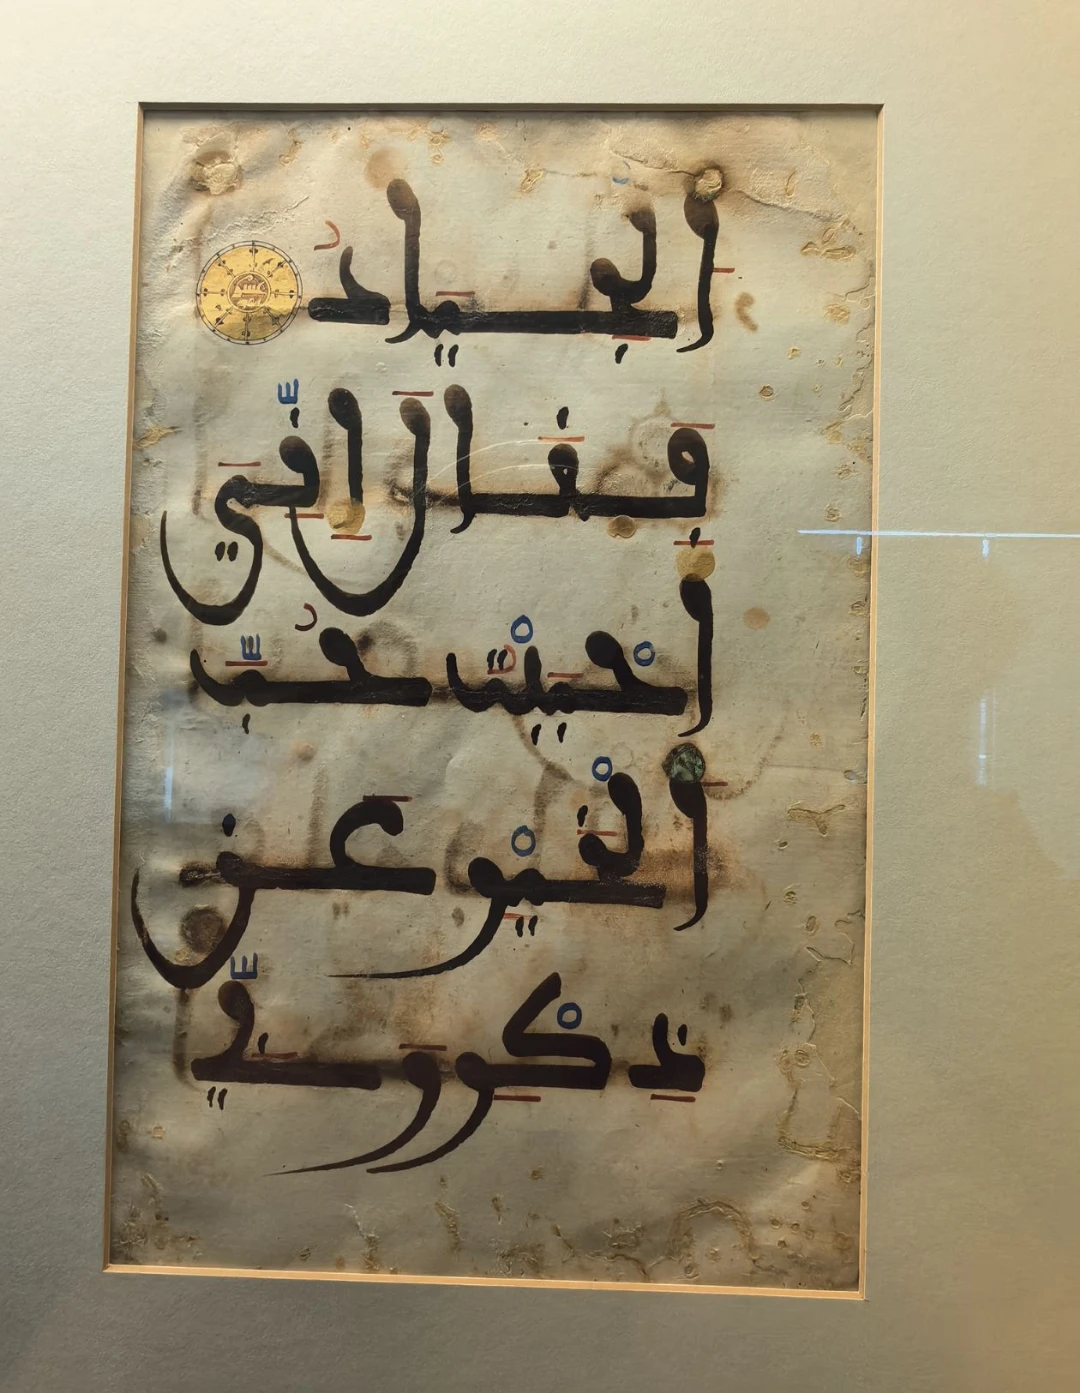 الْجِيَادُ
فَقَالَ إِنِّيَ
أَحْبَبْتُ حُبَّ
الْخَيْرِ عَن
ذِكْرِ رَبِّي